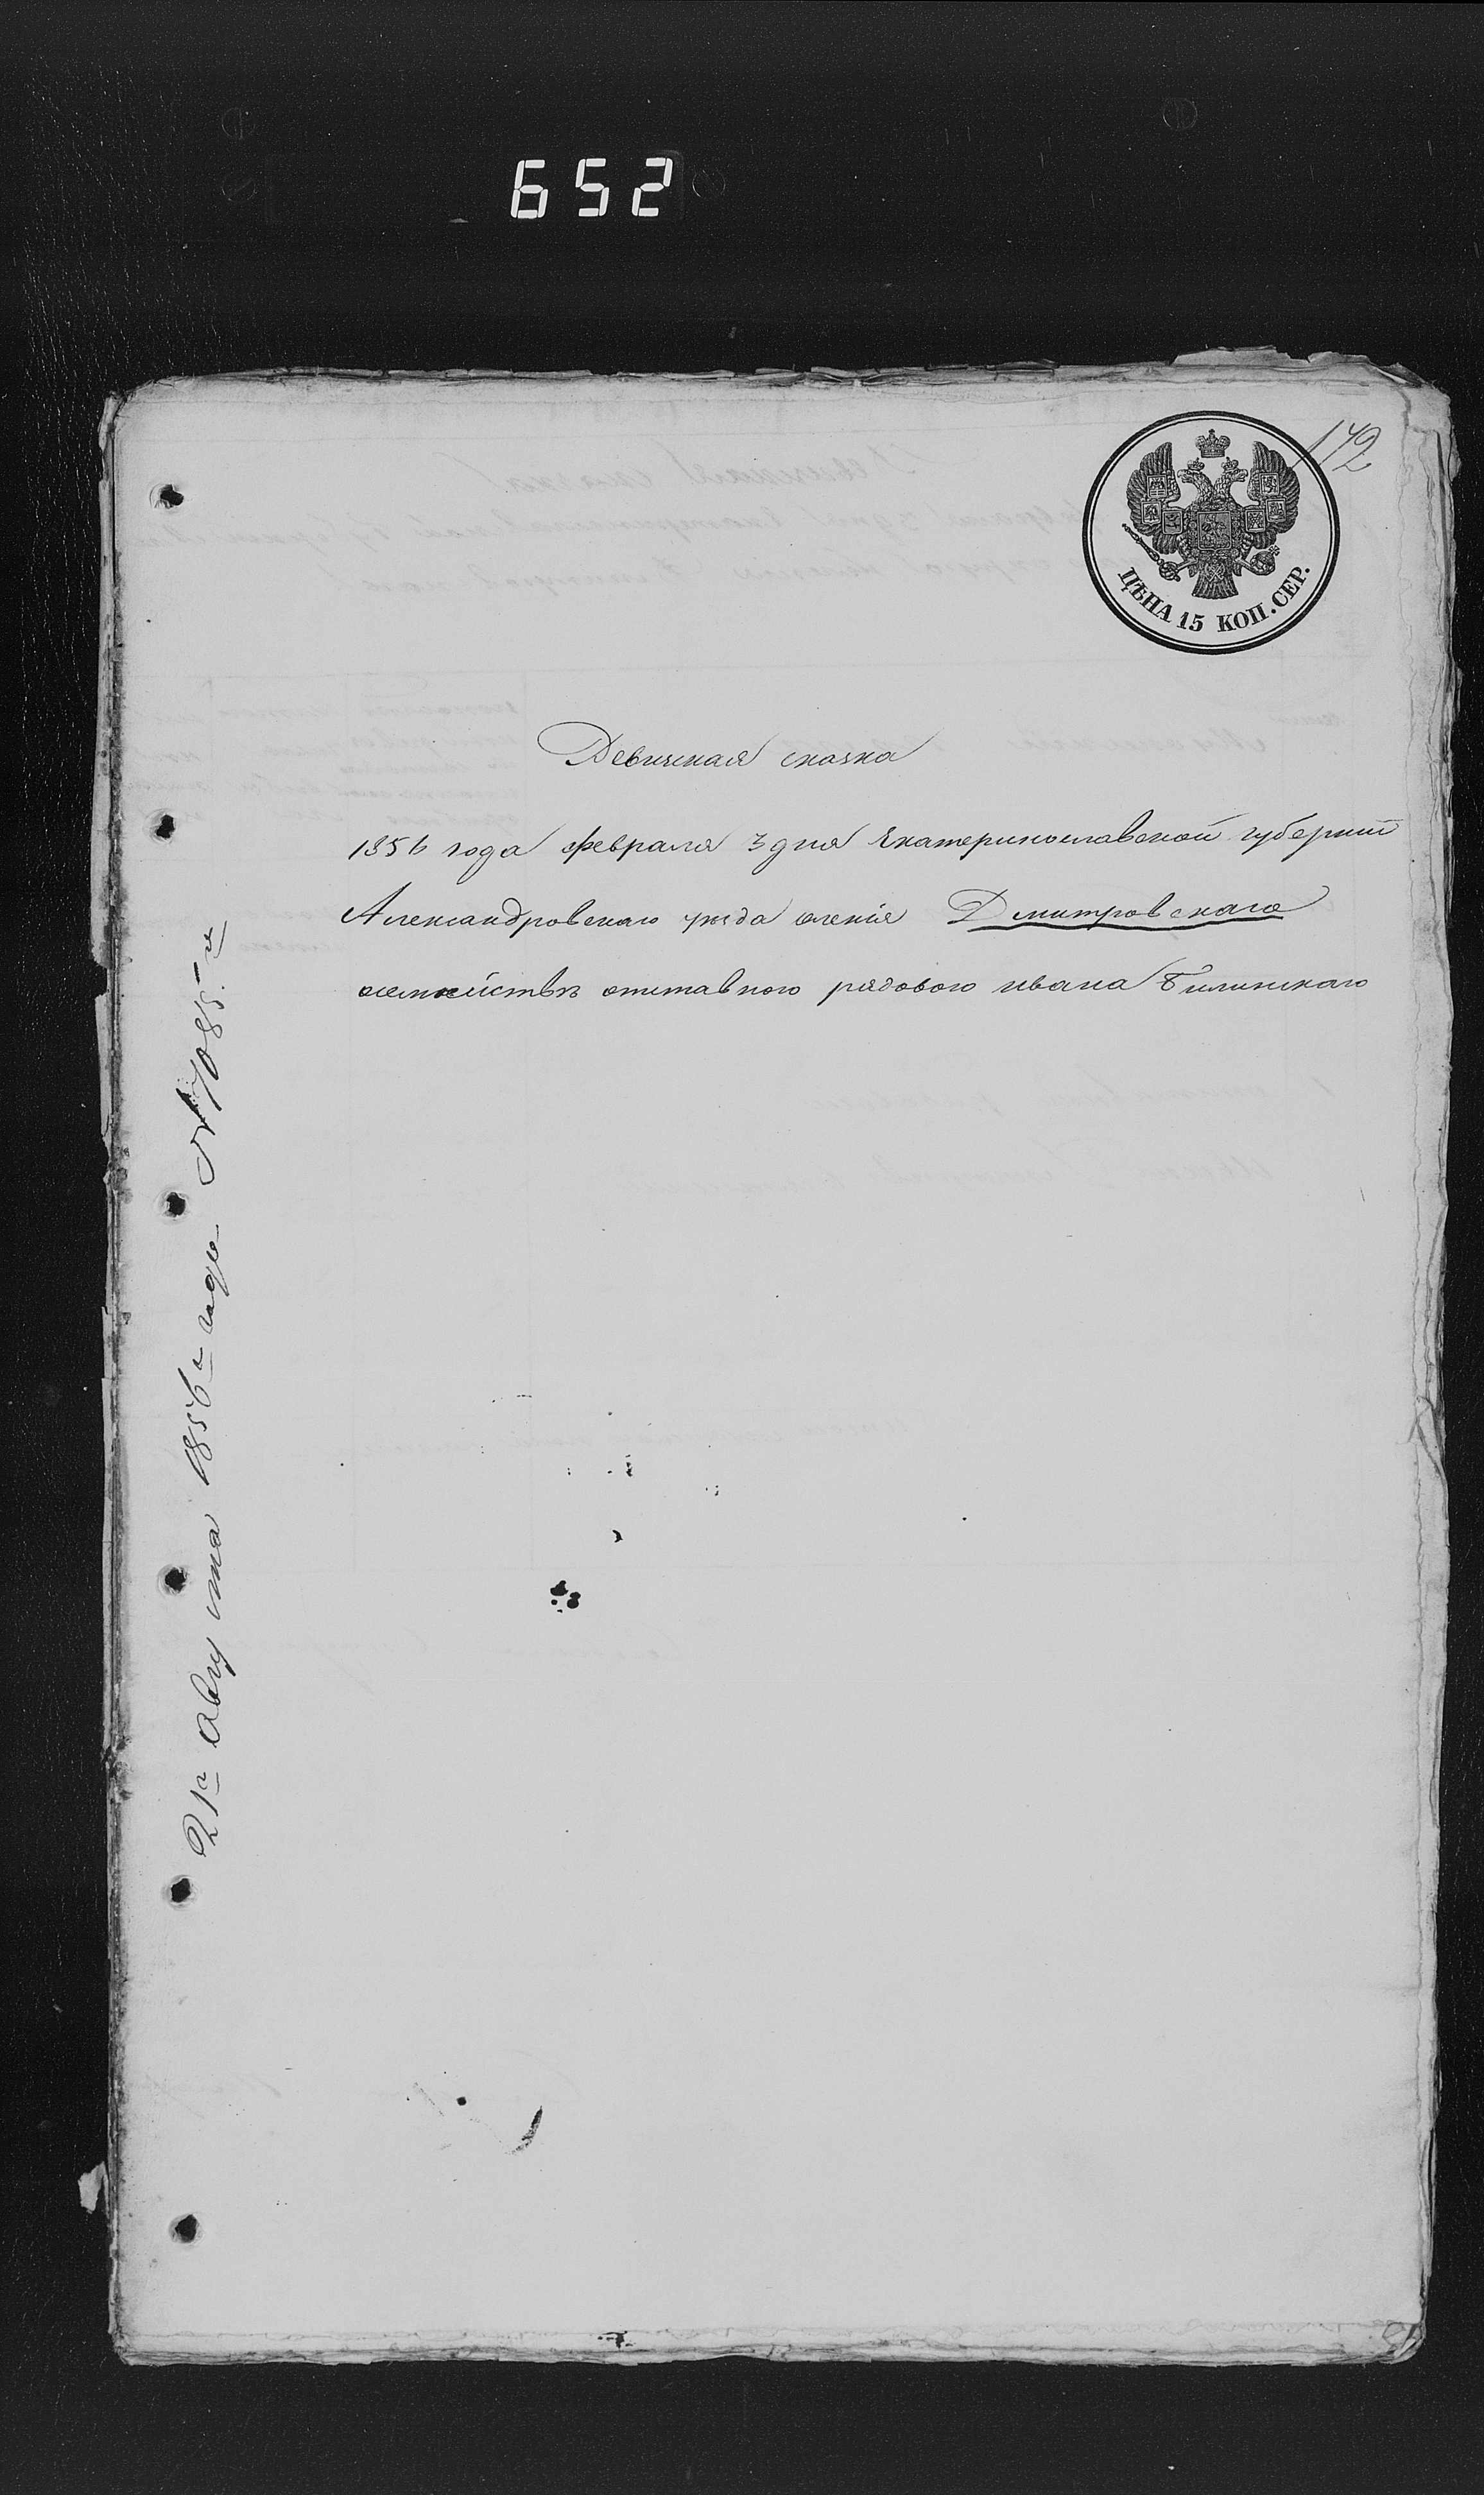 652
172
ЦѢНА 15 КОП. СЕР.
Девичская сказка
1856 года февраля 3 дня Екатеринославской губернии
Александровскаго уезда Дмитровскаго
семейства отставного рядового ивана Билинскаго
21го августа 1856го года №7085.